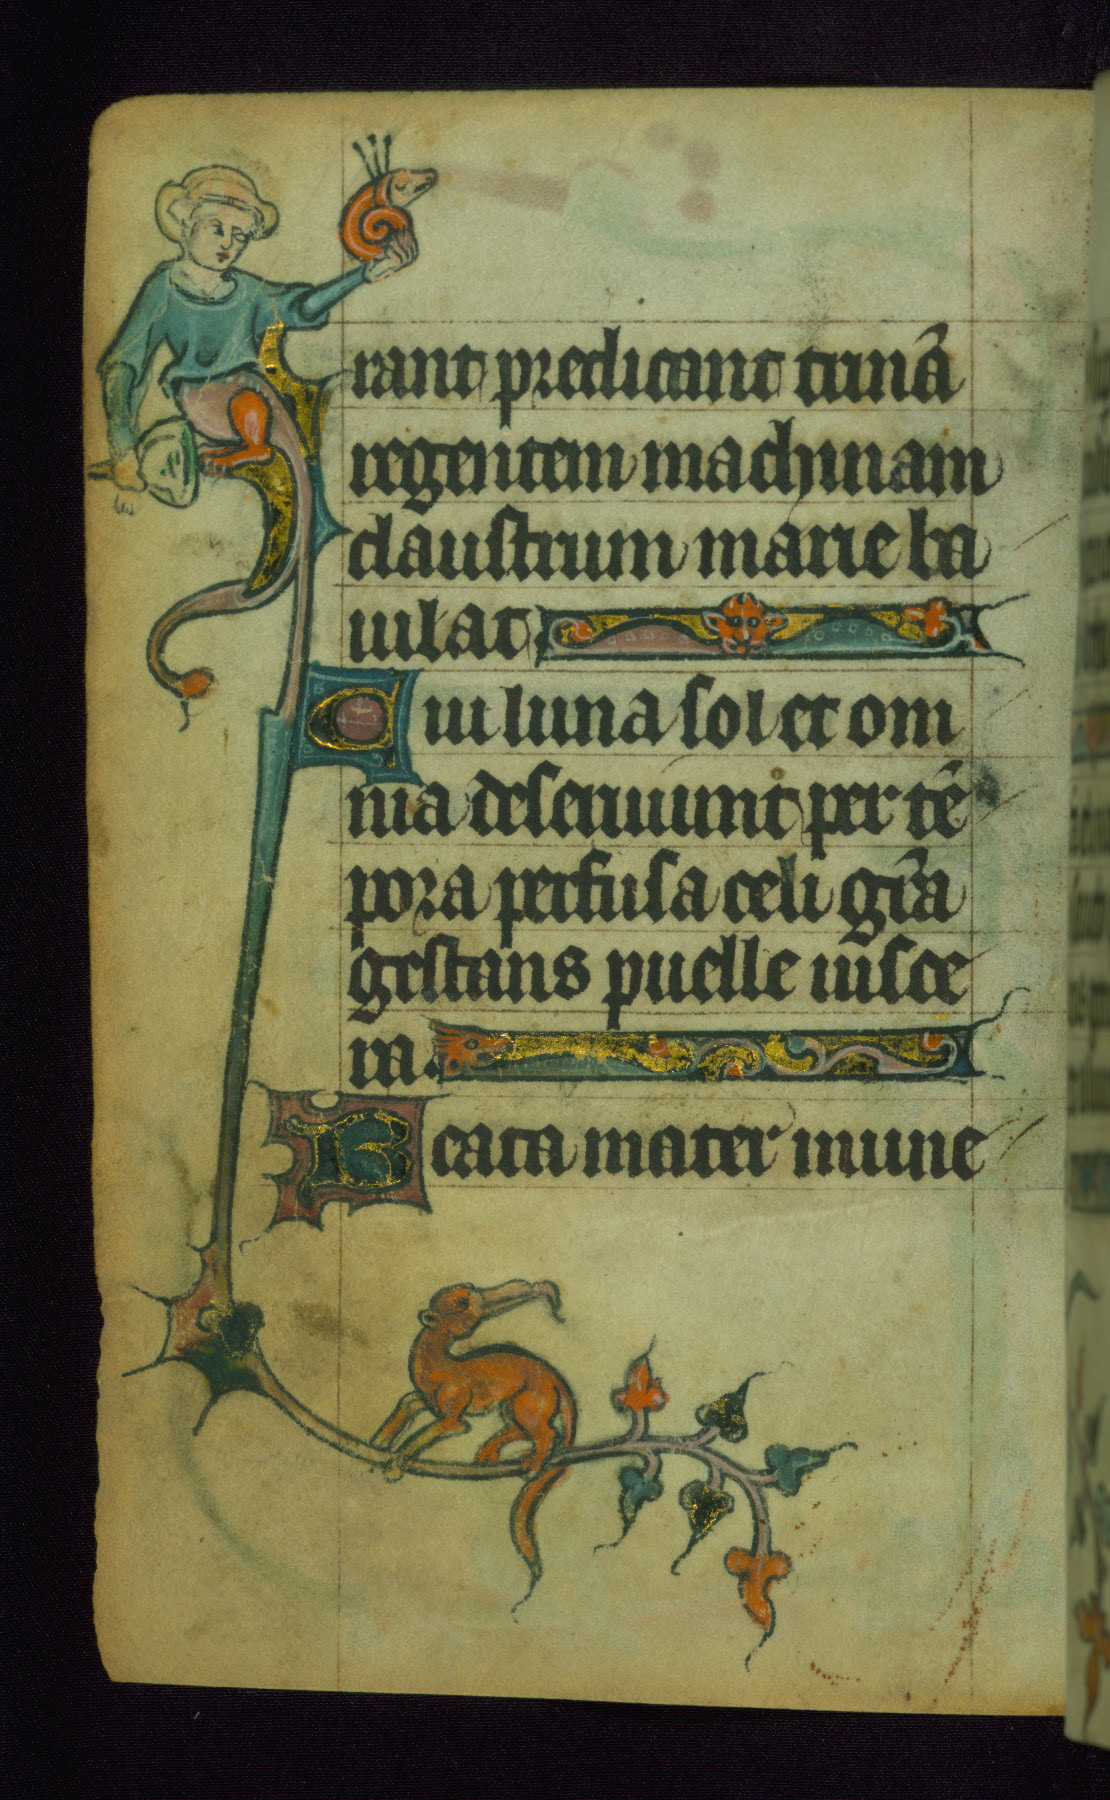 rant predicant trinā
regentem machinam
claustrum marie ba
iulat
Cui luna sol et om
nia deseruiunt per tē
pora perfusa celi gr̄a
gestans puelle uisce
ra.
Beata mater mune